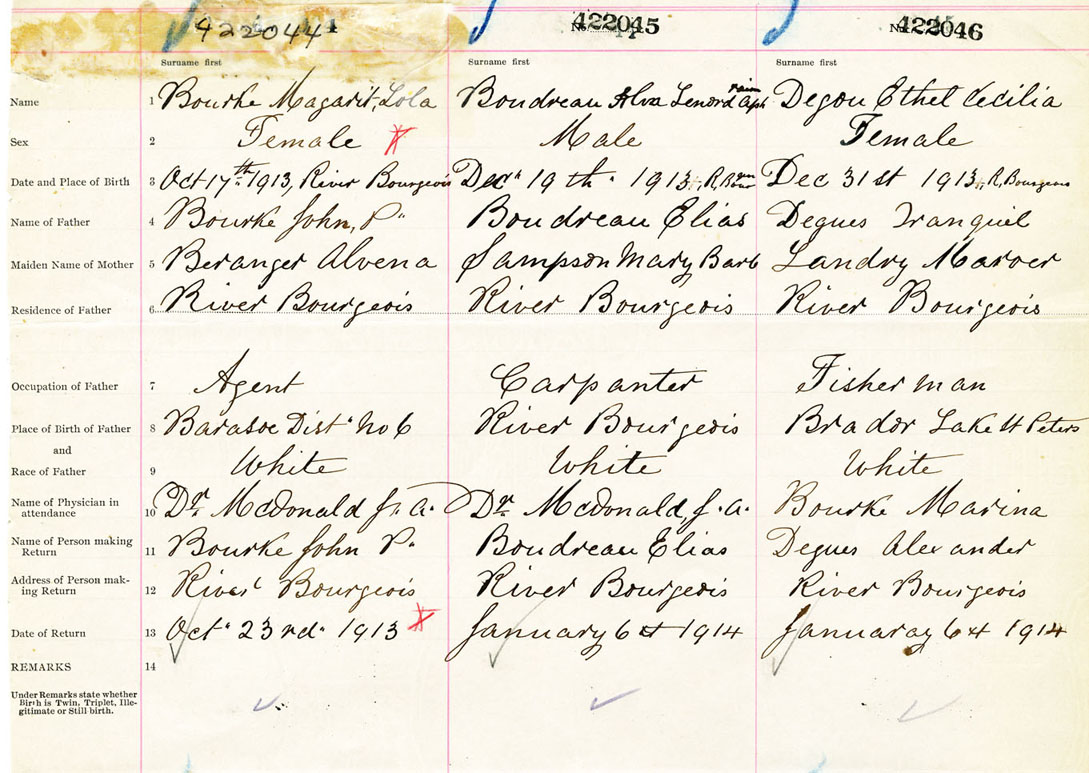 422044 No. 422045 No. 422046
Surname first Surname first Surname first
Name 1 Bourke Magarit, Lola Boudreau Alva Lenord Degou Ethel Cecilia
Sex 2 Female Male Female
Date and Place of Birth 3 Oct 17th 1913, River Bourgeois Dec" 19 th 1913, R, Dec 31st 1913, R, Bourgeois
Name of Father 4 Bourke John, P" Boudreau Elias Degues Tranquil
Maiden Name of Mother 5 Beranger Alvena Sampson Mary Barb Landry
Residence of Father 6 River Bourgeois River Bourgeois River Bourgeois
Occupation of Father 7 Agent Carpanter Fisherman
Place of Birth of Father 8 Dist" No 6 River Bourgeois Brador Lake St Peters
and
Race of Father 9 White White White
Name of Physician in
attendance 10 Dr. McDonald J. A. Dr. McDonald, J. A. Bourke Marina
Name of Person making
Return 11 Bourke John P" Boudreau Elias Degues Alexander
Address of Person mak-
ing Return 12 River Bourgeois River Bourgeois River Bourgeois
Date of Return 13 Oct" 23rd" 1913 January 6 1914 6 1914
REMARKS 14
Under Remarks state whether
Birth is Twin, Triplet, Ille-
gitimate or Still birth.